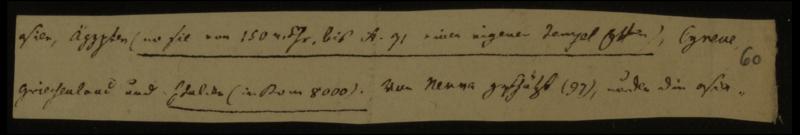 asien, Ägypten (wo sie von 150 v. Chr. bis A. 71 einen eigenen Tempel hatten), Cyrene,
60
Griechenland und Italien (in Rom 8000). Von Nerva geschützt (97), wurden die asia-